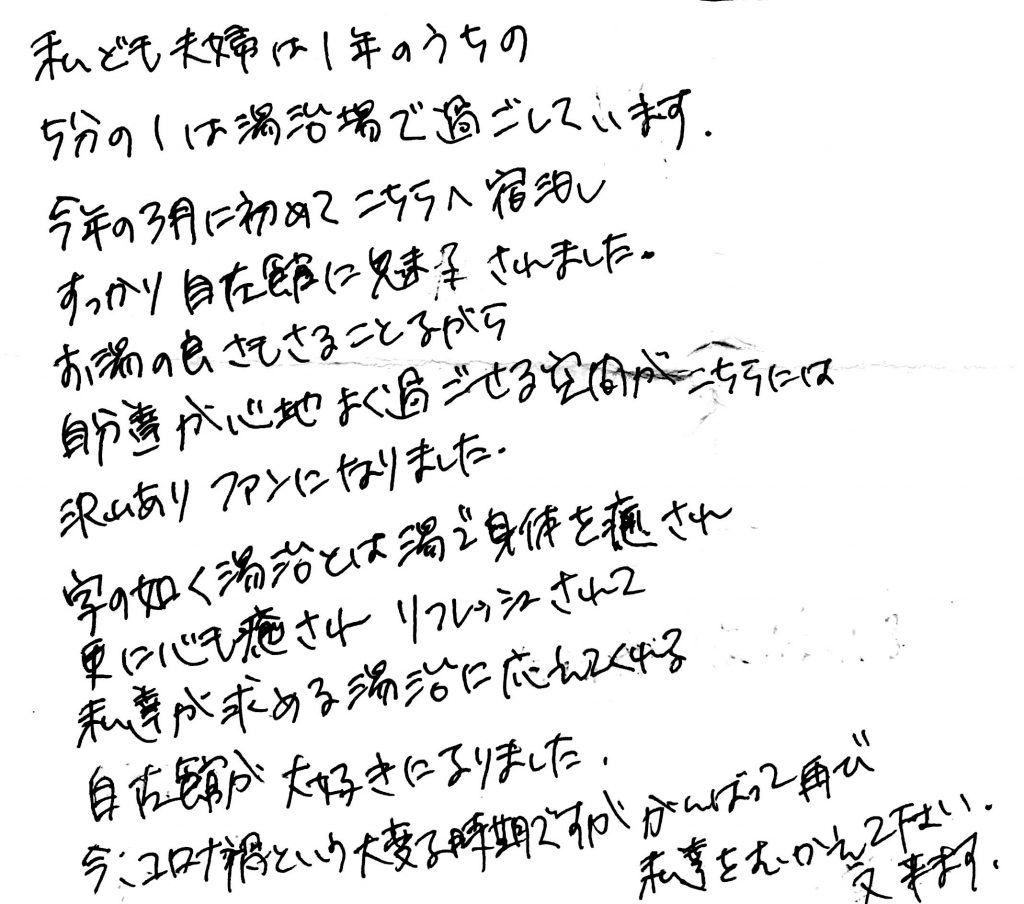 私ども夫婦は1年のうちの
5分の1は湯治場で過ごしています.
今年の3月に初めてこちらへ宿泊し
すっかり自在館に魅了されました。
お湯の良さもさることながら
自分達が心地よく過ごせる空間がこちらには
沢山ありファンになりました.
字の如く湯治とは湯で身体を癒され
更に心も癒され リフレッシュされて
私達が求める湯治に応えてくれる
自在館が大好きになりました.
今、コロナ禍という大変な時期ですががんばって再び
私達をむかえて下さい.
又来ます.